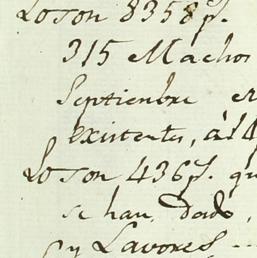 Lo son 8358 p.s
315 Machos
Septiembre er
existentes, à 14
Lo son 436 p.s qu
se han dado,
y Lavores